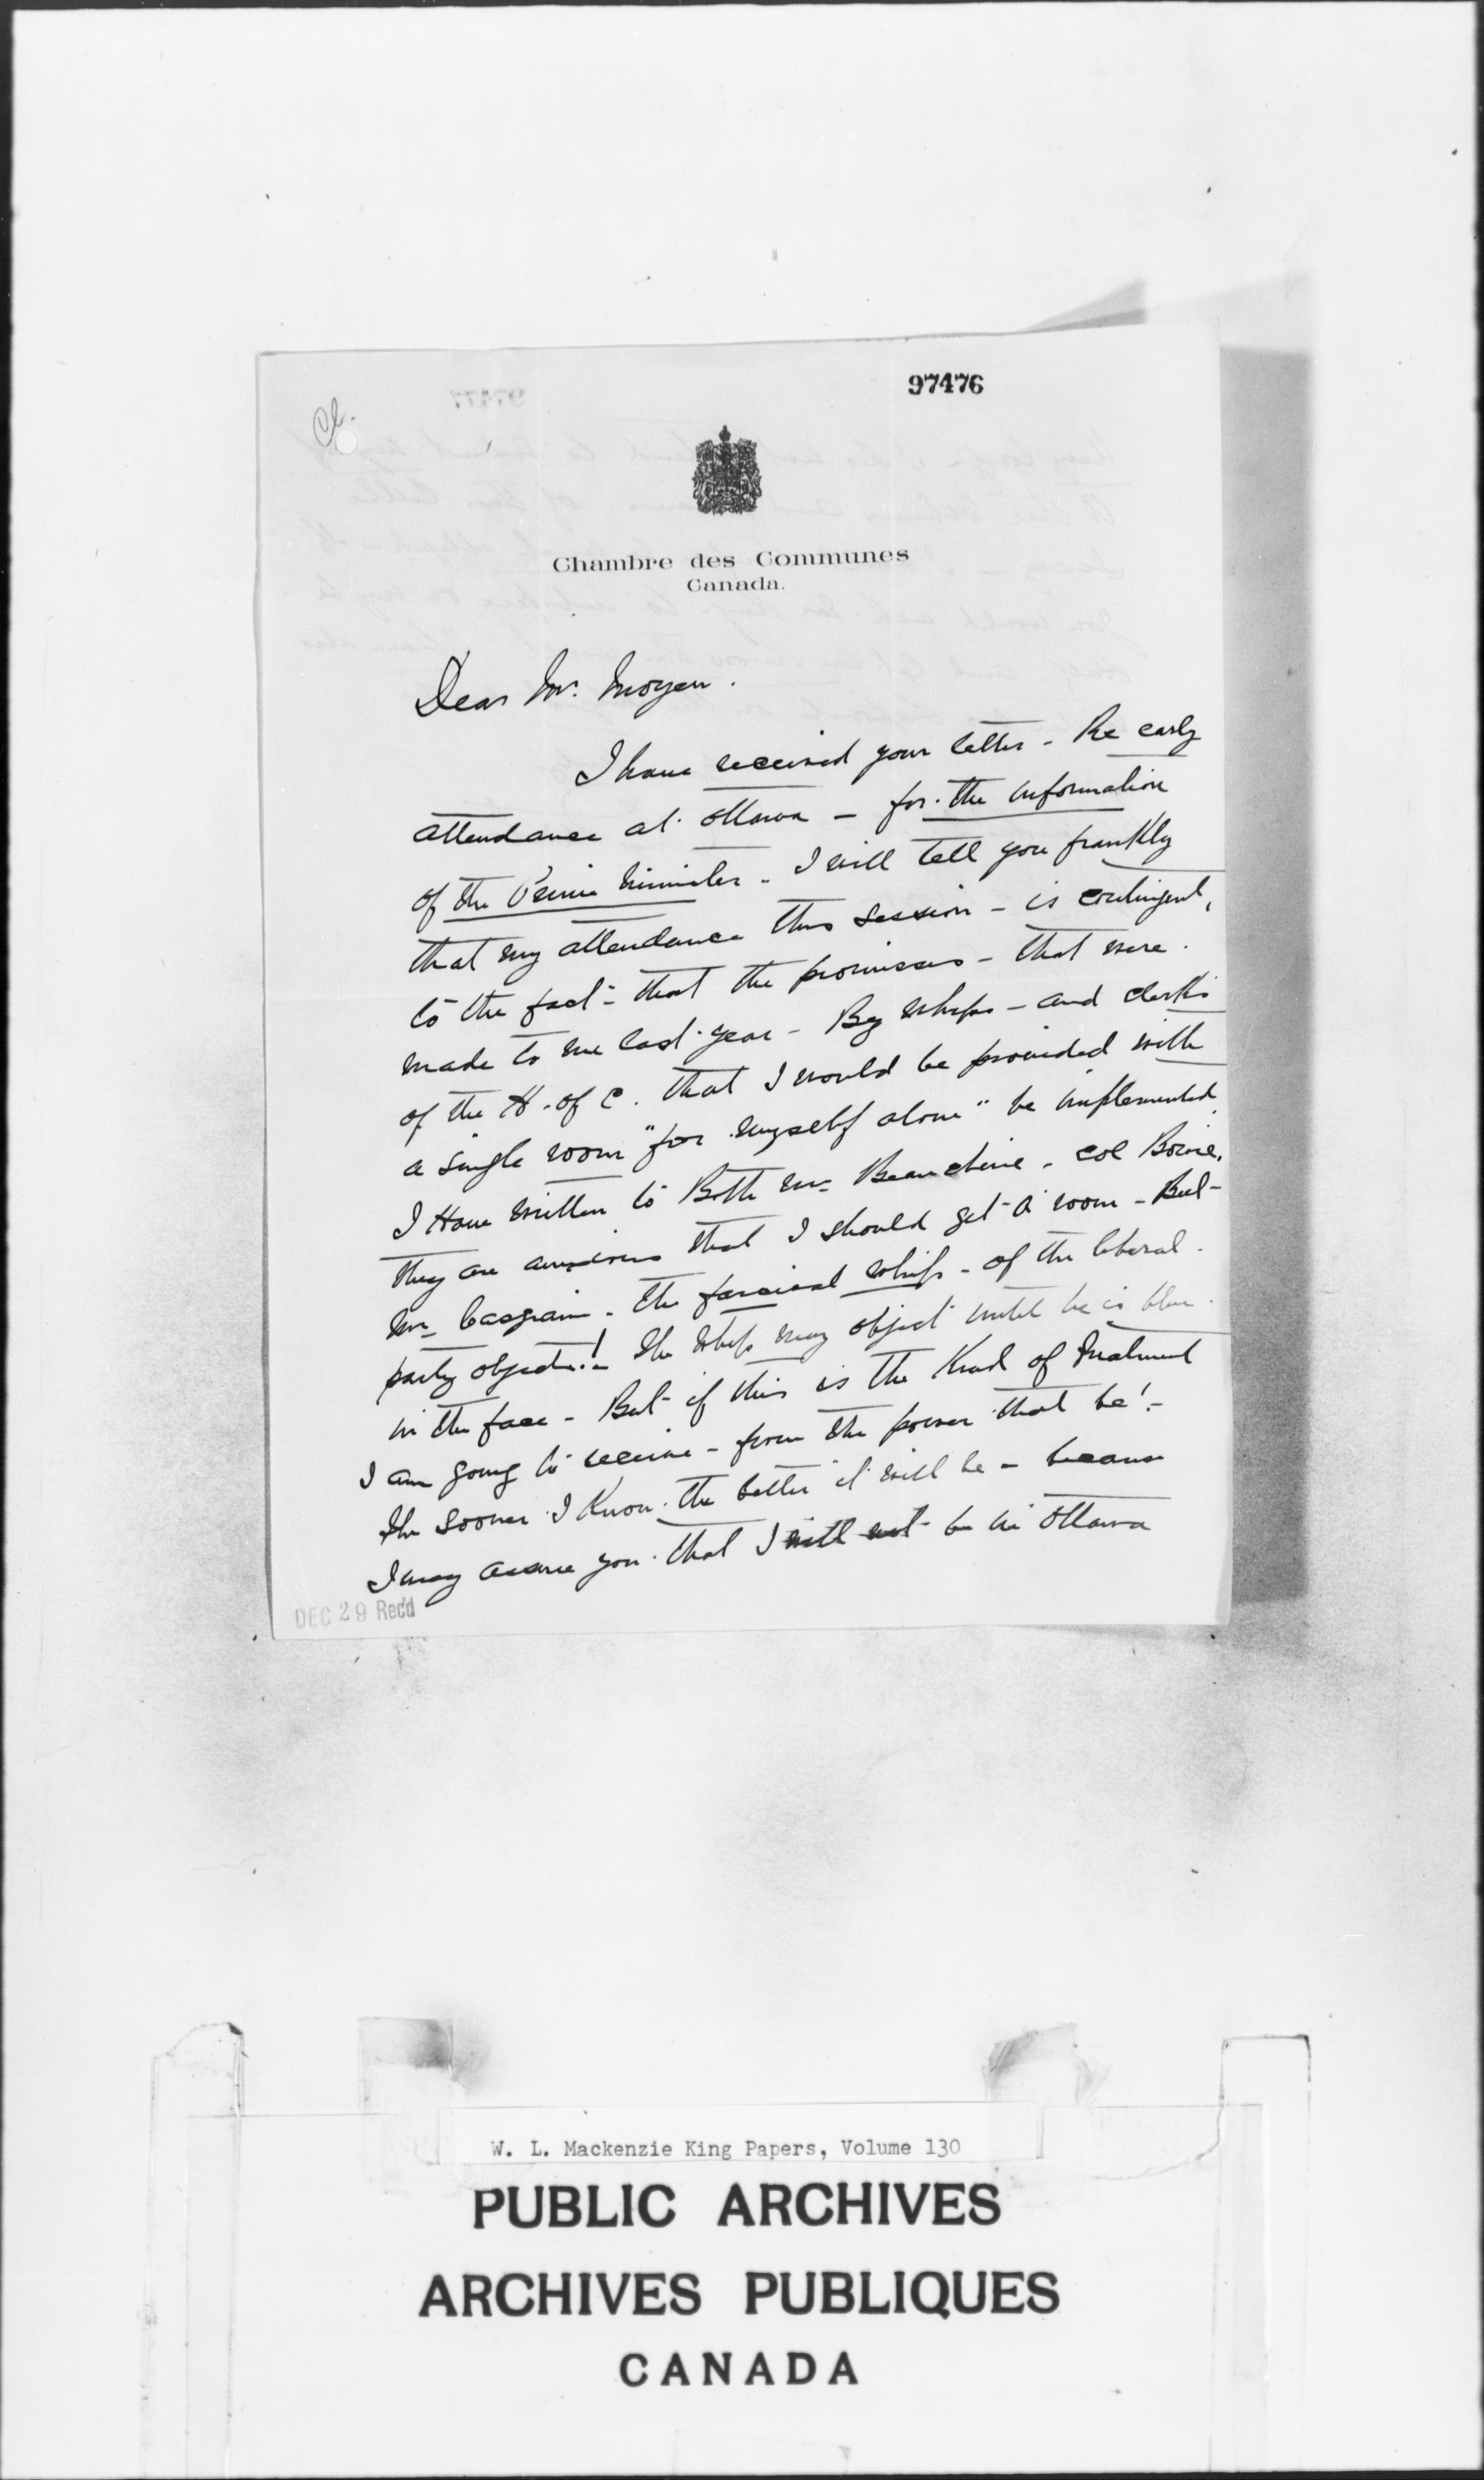 97476
Cl.
Chambre des Communes
Canada.
Dear Mr. Moyer.
I have received your letter - Re early
attendance at Ottawa - for the information
of the Prime Minister - I will tell you frankly
that my attendance this session - is contingent,
to the fact - that the promises - that were
made to me last year - By Whips - and clerks
of the H. of C. that I would be provided with
a single room "for myself alone" be implemented
I Have written to Both Mr. Beauchesne - Col Bowie.
They are anxious that I should get a room - But -
Mr. Casgrain - the farcical whip - of the liberal
party objects! - The Whip may object until he is blue
in the face - But if this is the Kind of treatment
I am going to receive - from the power that be! -
The sooner I Know the better it will be - because
I may assure you that I will not be in Ottawa
DEC 29 Rec'd
W. L. Mackenzie King Papers, Volume 130
PUBLIC ARCHIVES
ARCHIVES PUBLIQUES
CANADA